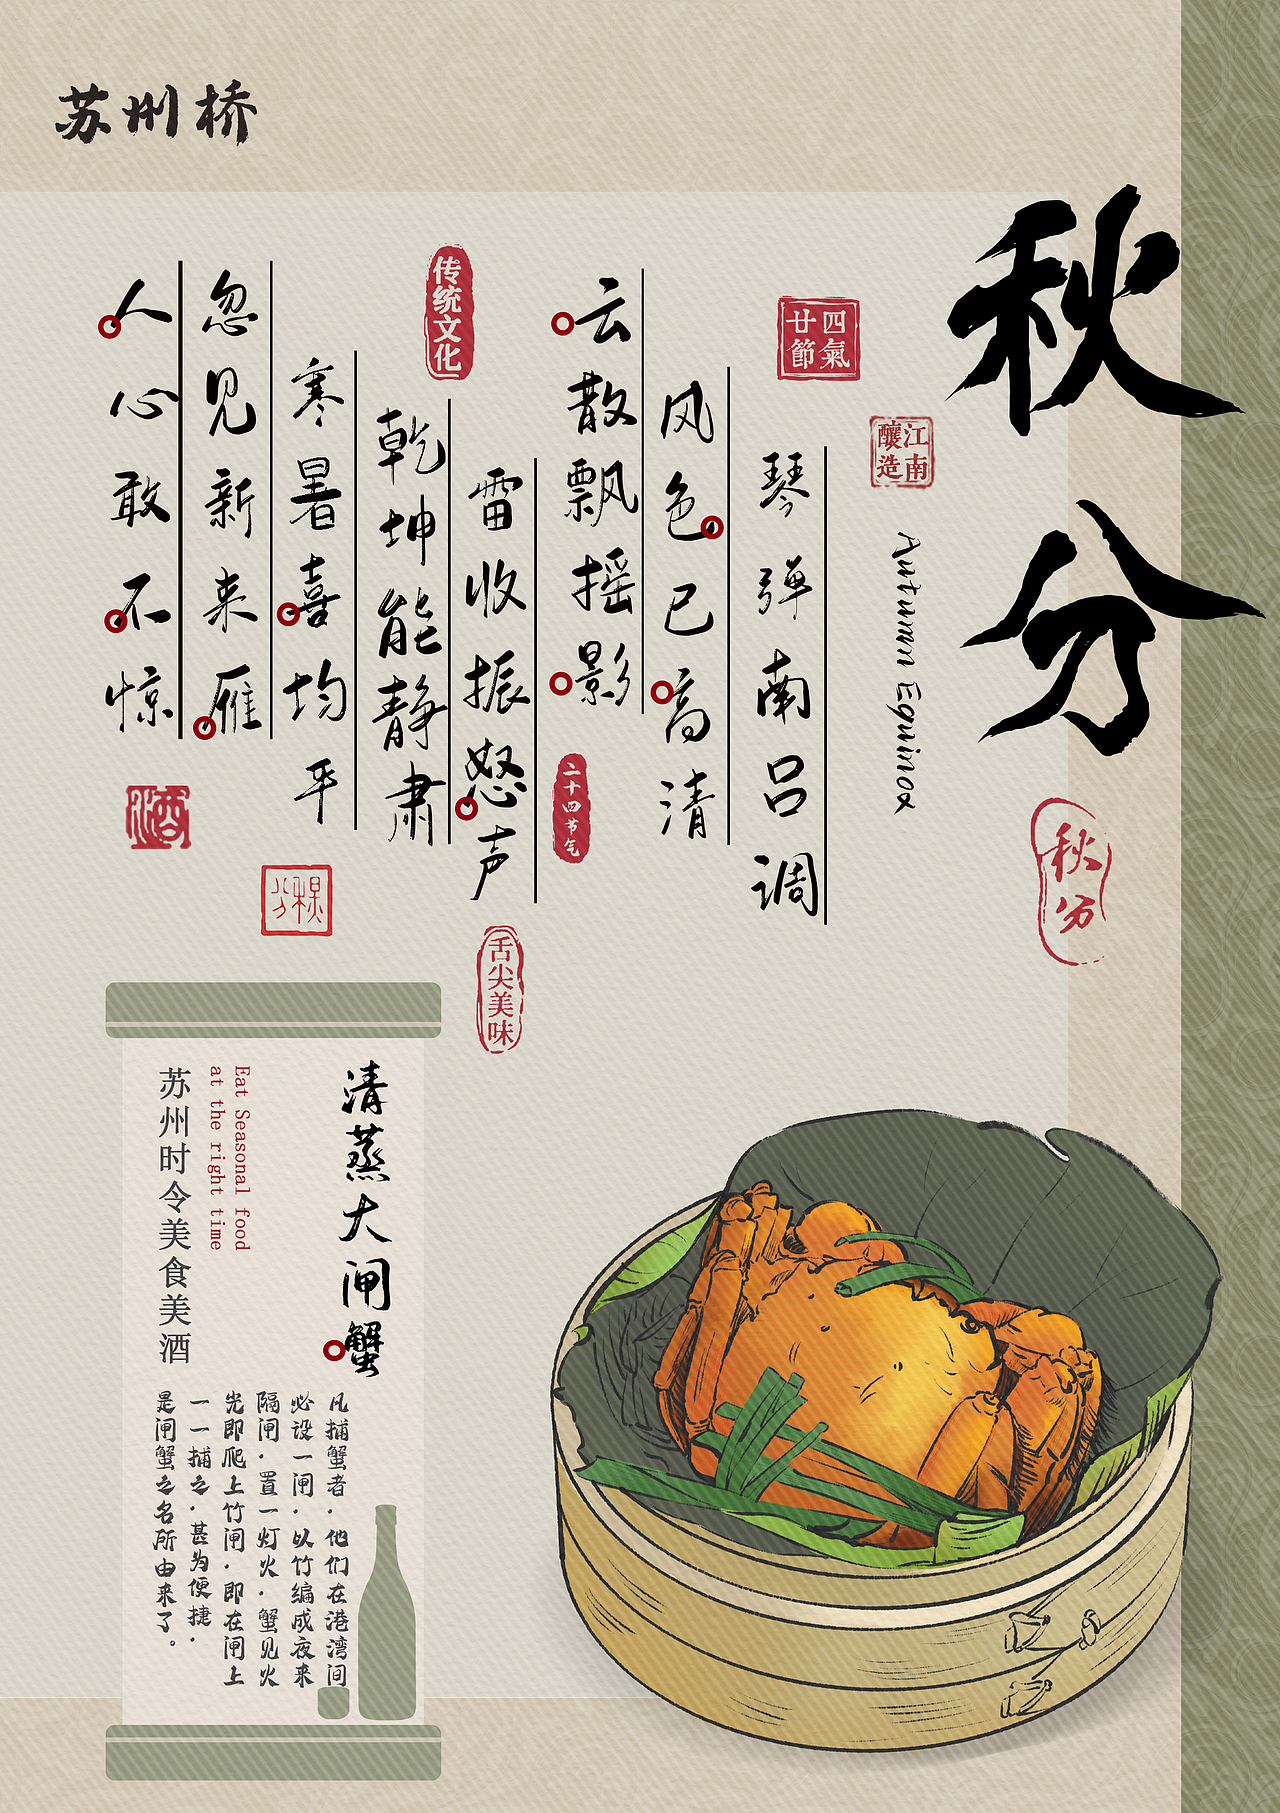 苏州桥
秋分
Autumn Equinox
四氣
廿節
江南
釀造
秋分
琴弹南吕调
风色已高清
云散飘摇影
雷收振怒声
乾坤能静肃
寒暑喜均平
忽见新来雁
人心敢不惊
传统文化
二十四节气
舌尖美味
酒
清蒸大闸蟹
Eat Seasonal food
at the right time
苏州时令美食美酒
凡捕蟹者.他们在港湾间
必设一闸.以竹编成夜来
隔闸.置一灯火.蟹见火
光即爬上竹闸.即在闸上
一一捕之.甚为便捷.
是闸蟹之名所由来了。